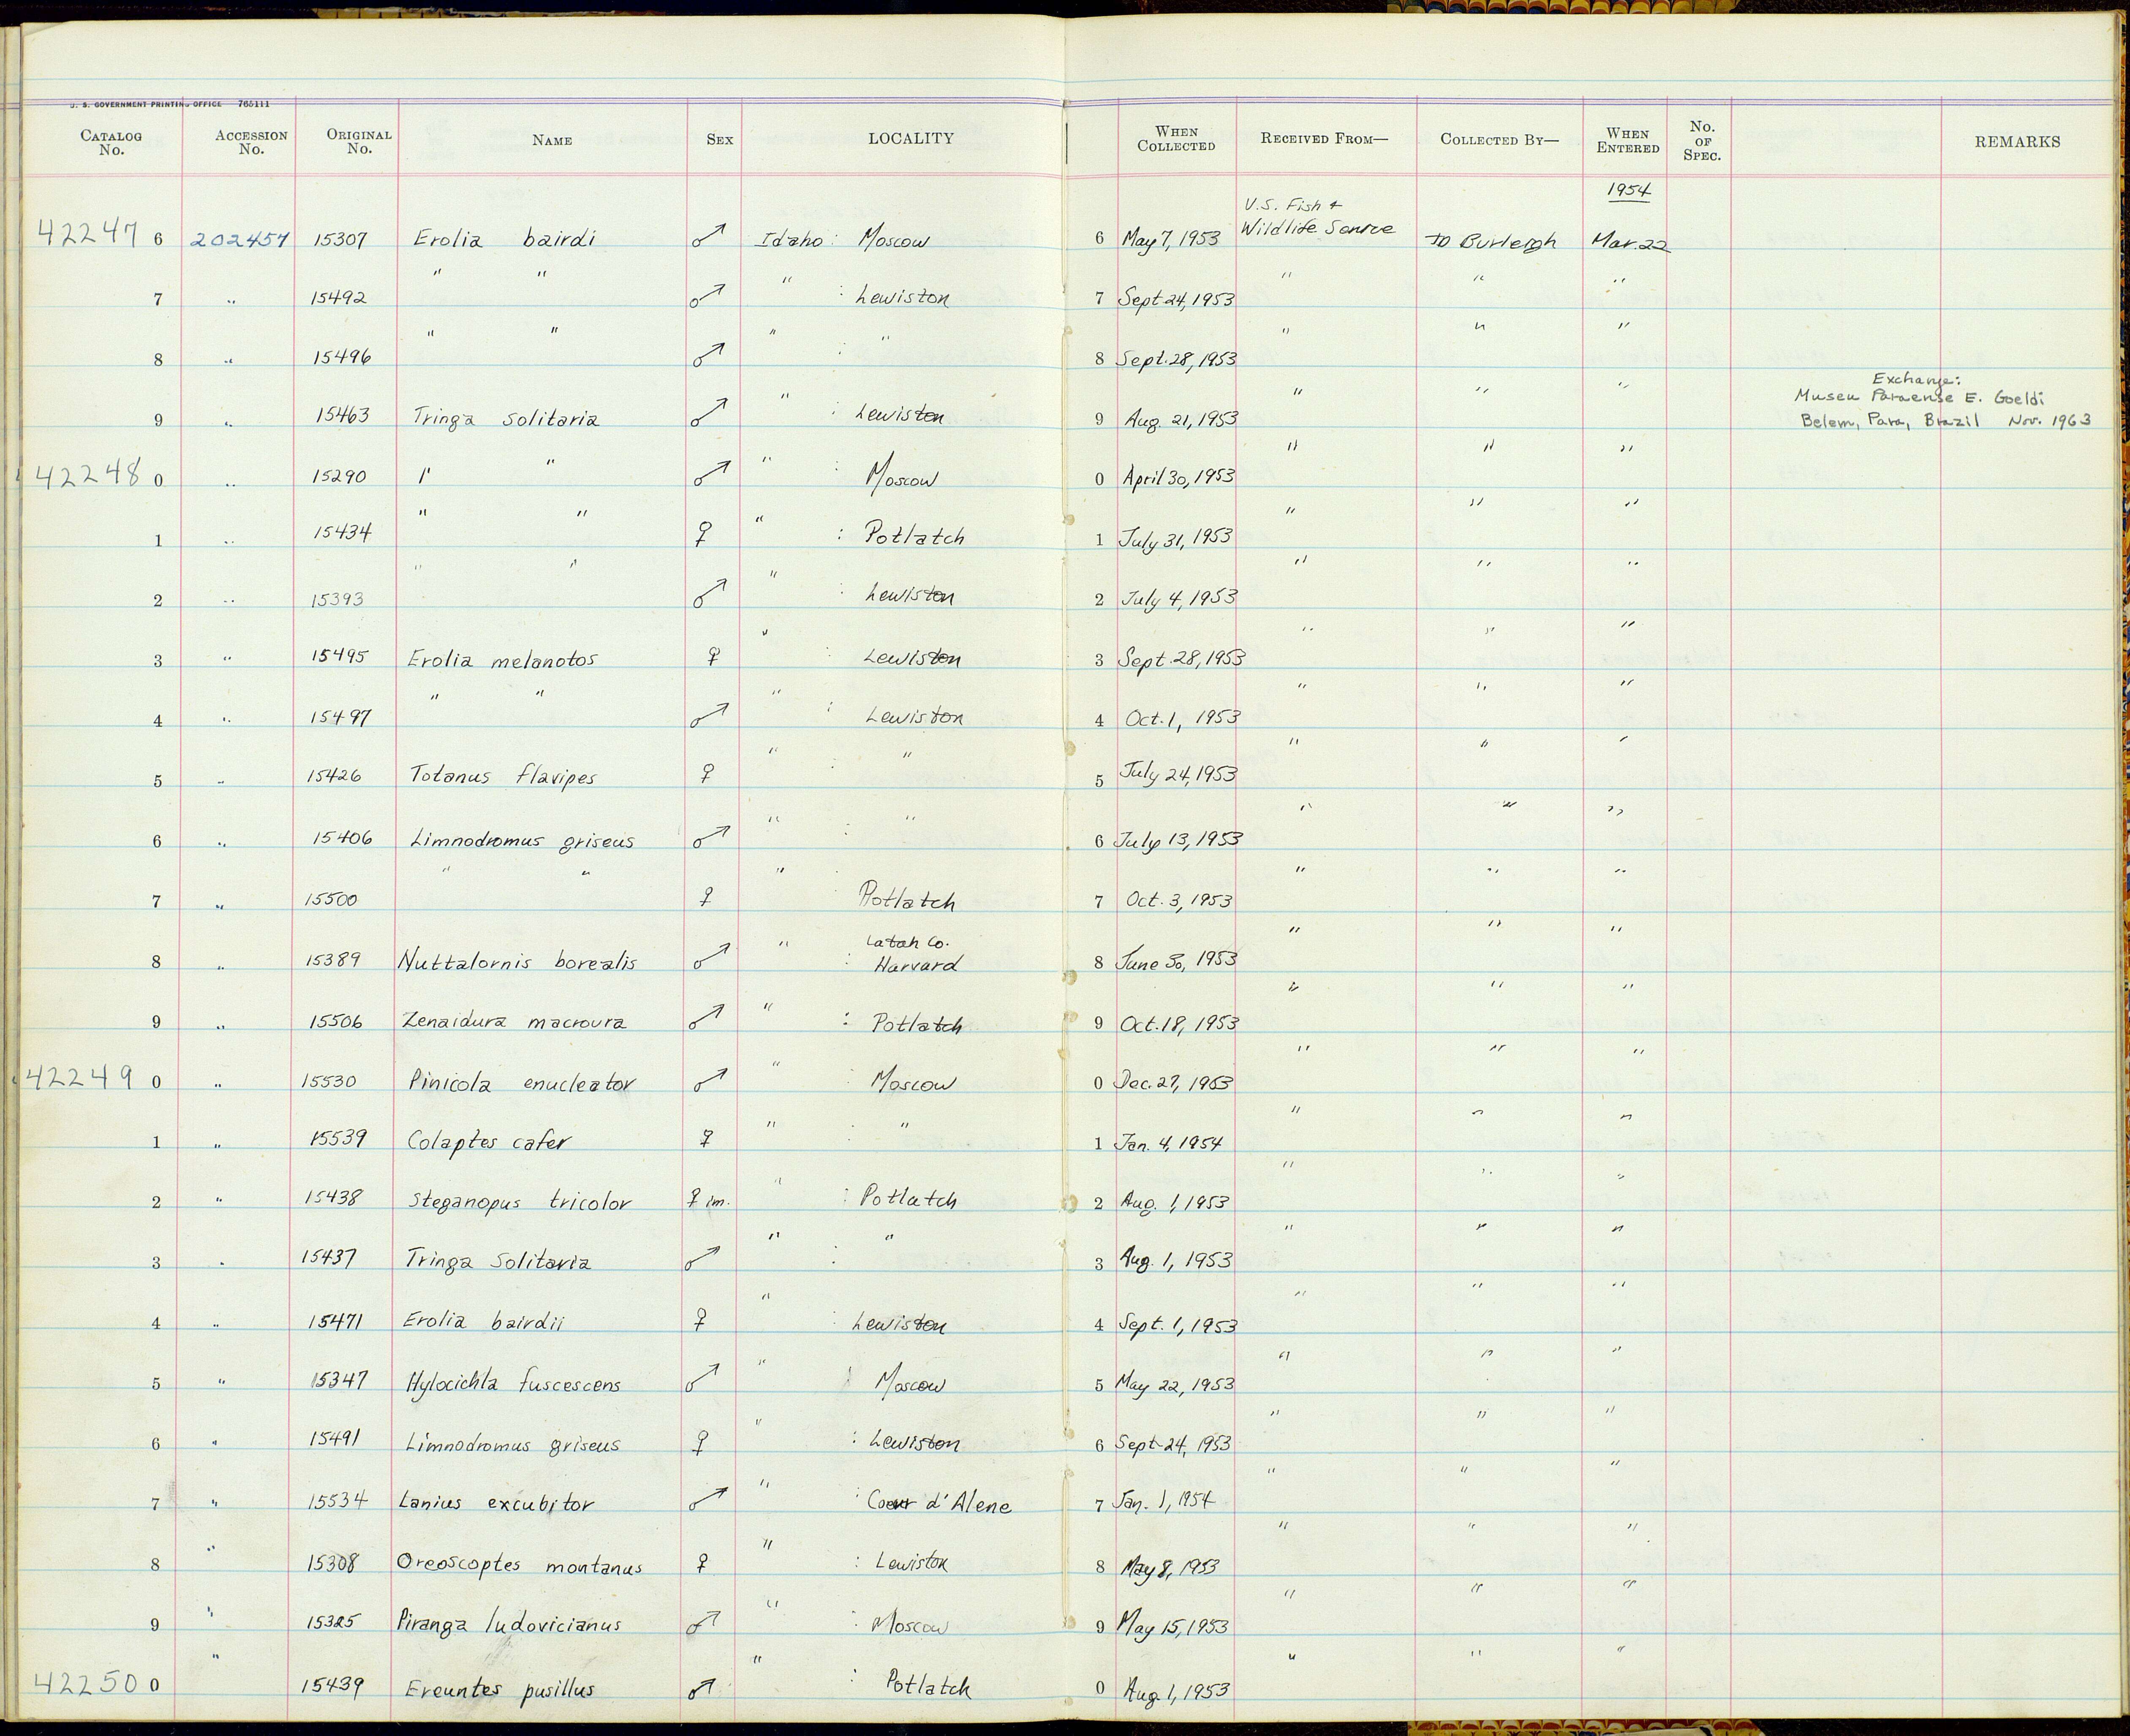 U. S. GOVERNMENT PRINTING OFFICE 765111
CATALOG No. ACCESSION No. ORIGINAL No. NAME SEX LOCALITY WHEN COLLECTED RECEIVED FROM— COLLECTED BY— WHEN ENTERED No. OF SPEC. REMARKS
1954
U.S. Fish &
42247 6 202457 15307 Erolia bairdi ♂ Idaho: Moscow 6 May 7, 1953 Wildlife Service TD Burleigh Mar. 22
7 " 15492 " " ♂ " : Lewiston 7 Sept 24, 1953 " " "
8 " 15496 " " ♂ " : " 8 Sept. 28, 1953 " " "
Exchange:
Museu Paraense E. Goeldi
9 " 15463 Tringa solitaria ♂ " : Lewiston 9 Aug. 21, 1953 " " " Belem, Para, Brazil Nov. 1963
42248 0 " 15290 " " ♂ " : Moscow 0 April 30, 1953 " " "
1 " 15434 " " ♀ " : Potlatch 1 July 31, 1953 " " "
2 " 15393 " " ♂ " : Lewiston 2 July 4, 1953 " " "
3 " 15495 Erolia melanotos ♀ " : Lewiston 3 Sept. 28, 1953 " " "
4 " 15497 " " ♂ " : Lewiston 4 Oct. 1, 1953 " " "
5 " 15426 Totanus flavipes ♀ " : " 5 July 24, 1953 " " "
6 " 15406 Limnodromus griseus ♂ " : " 6 July 13, 1953 " " "
7 " 15500 " " ♀ " : Potlatch 7 Oct. 3, 1953 " " "
Latah Co.
8 " 15389 Nuttalornis borealis ♂ " : Harvard 8 June 30, 1953 " " "
9 " 15506 Zenaidura macroura ♂ " : Potlatch 9 Oct. 18, 1953 " " "
42249 0 " 15530 Pinicola enucleator ♂ " : Moscow 0 Dec. 27, 1953 " " "
1 " 15539 Colaptes cafer ♀ " : " 1 Jan. 4, 1954 " " "
2 " 15438 Steganopus tricolor ♀ im. " : Potlatch 2 Aug. 1, 1953 " " "
3 " 15437 Tringa Solitaria ♂ " : " 3 Aug. 1, 1953 " " "
4 " 15471 Erolia bairdii ♀ " : Lewiston 4 Sept. 1, 1953 " " "
5 " 15347 Hylocichla fuscescens ♂ " : Moscow 5 May 22, 1953 " " "
6 " 15491 Limnodromus griseus ♀ " : Lewiston 6 Sept 24, 1953 " " "
7 " 15534 Lanius excubitor ♂ " : Coeur d'Alene 7 Jan. 1, 1954 " " "
8 " 15308 Oreoscoptes montanus ♀ " : Lewiston 8 May 8, 1953 " " "
9 " 15325 Piranga ludovicianus ♂ " : Moscow 9 May 15, 1953 " " "
42250 0 " 15439 Ereuntes pusillus ♂ " : Potlatch 0 Aug 1, 1953 " " "